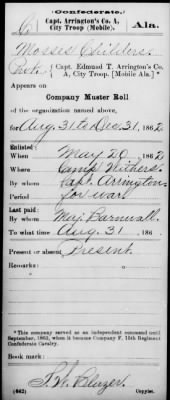 (Confederate.)
C
Capt. Arrington's Co. A,
City Troop (Mobile).
Ala.
Mosses Childers
Pvt., Capt. Edmund T. Arrington's Co.
A, City Troop. (Mobile Ala.)*
Appears on
Company Muster Roll
of the organization named above,
for Aug. 31 to Dec. 31, 1862
Enlisted:
When May 20, 1862
Where Camp Withers
By whom Capt. Arrington
Period for war
Last paid:
By whom Maj. Barnwall
To what time Aug. 31, 186
Present or absent Present
Remarks:
*This company served as an independent command until
September, 1863, when it became Company F, 15th Regiment
Confederate Cavalry.
Book mark:
(642)
Copyist.